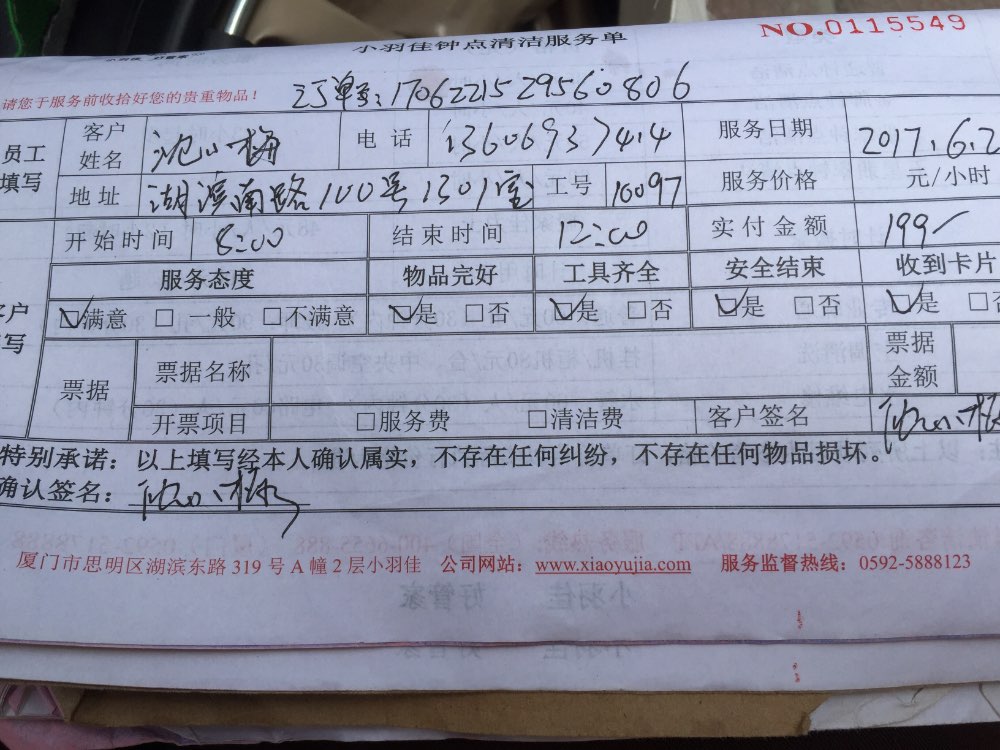 小羽佳钟点清洁服务单
NO.0115549
请您于服务前收拾好您的贵重物品！
订单号：170622152956 0806
员工填写 客户姓名 沈小梅 电话 13606937414 服务日期 2017.6.2
地址 湖滨南路100号1301室 工号 10097 服务价格 元/小时
开始时间 8:00 结束时间 12:00 实付金额 199
服务态度 物品完好 工具齐全 安全结束 收到卡片
☑满意 □一般 □不满意 ☑是 □否 ☑是 □否 ☑是 □否 ☑是 □
票据 票据名称 票据金额
开票项目 □服务费 □清洁费 客户签名 沈小梅
特别承诺：以上填写经本人确认属实，不存在任何纠纷，不存在任何物品损坏。
确认签名：沈小梅
厦门市思明区湖滨东路 319 号 A 幢 2 层小羽佳 公司网站：www.xiaoyujia.com 服务监督热线：0592-5888123